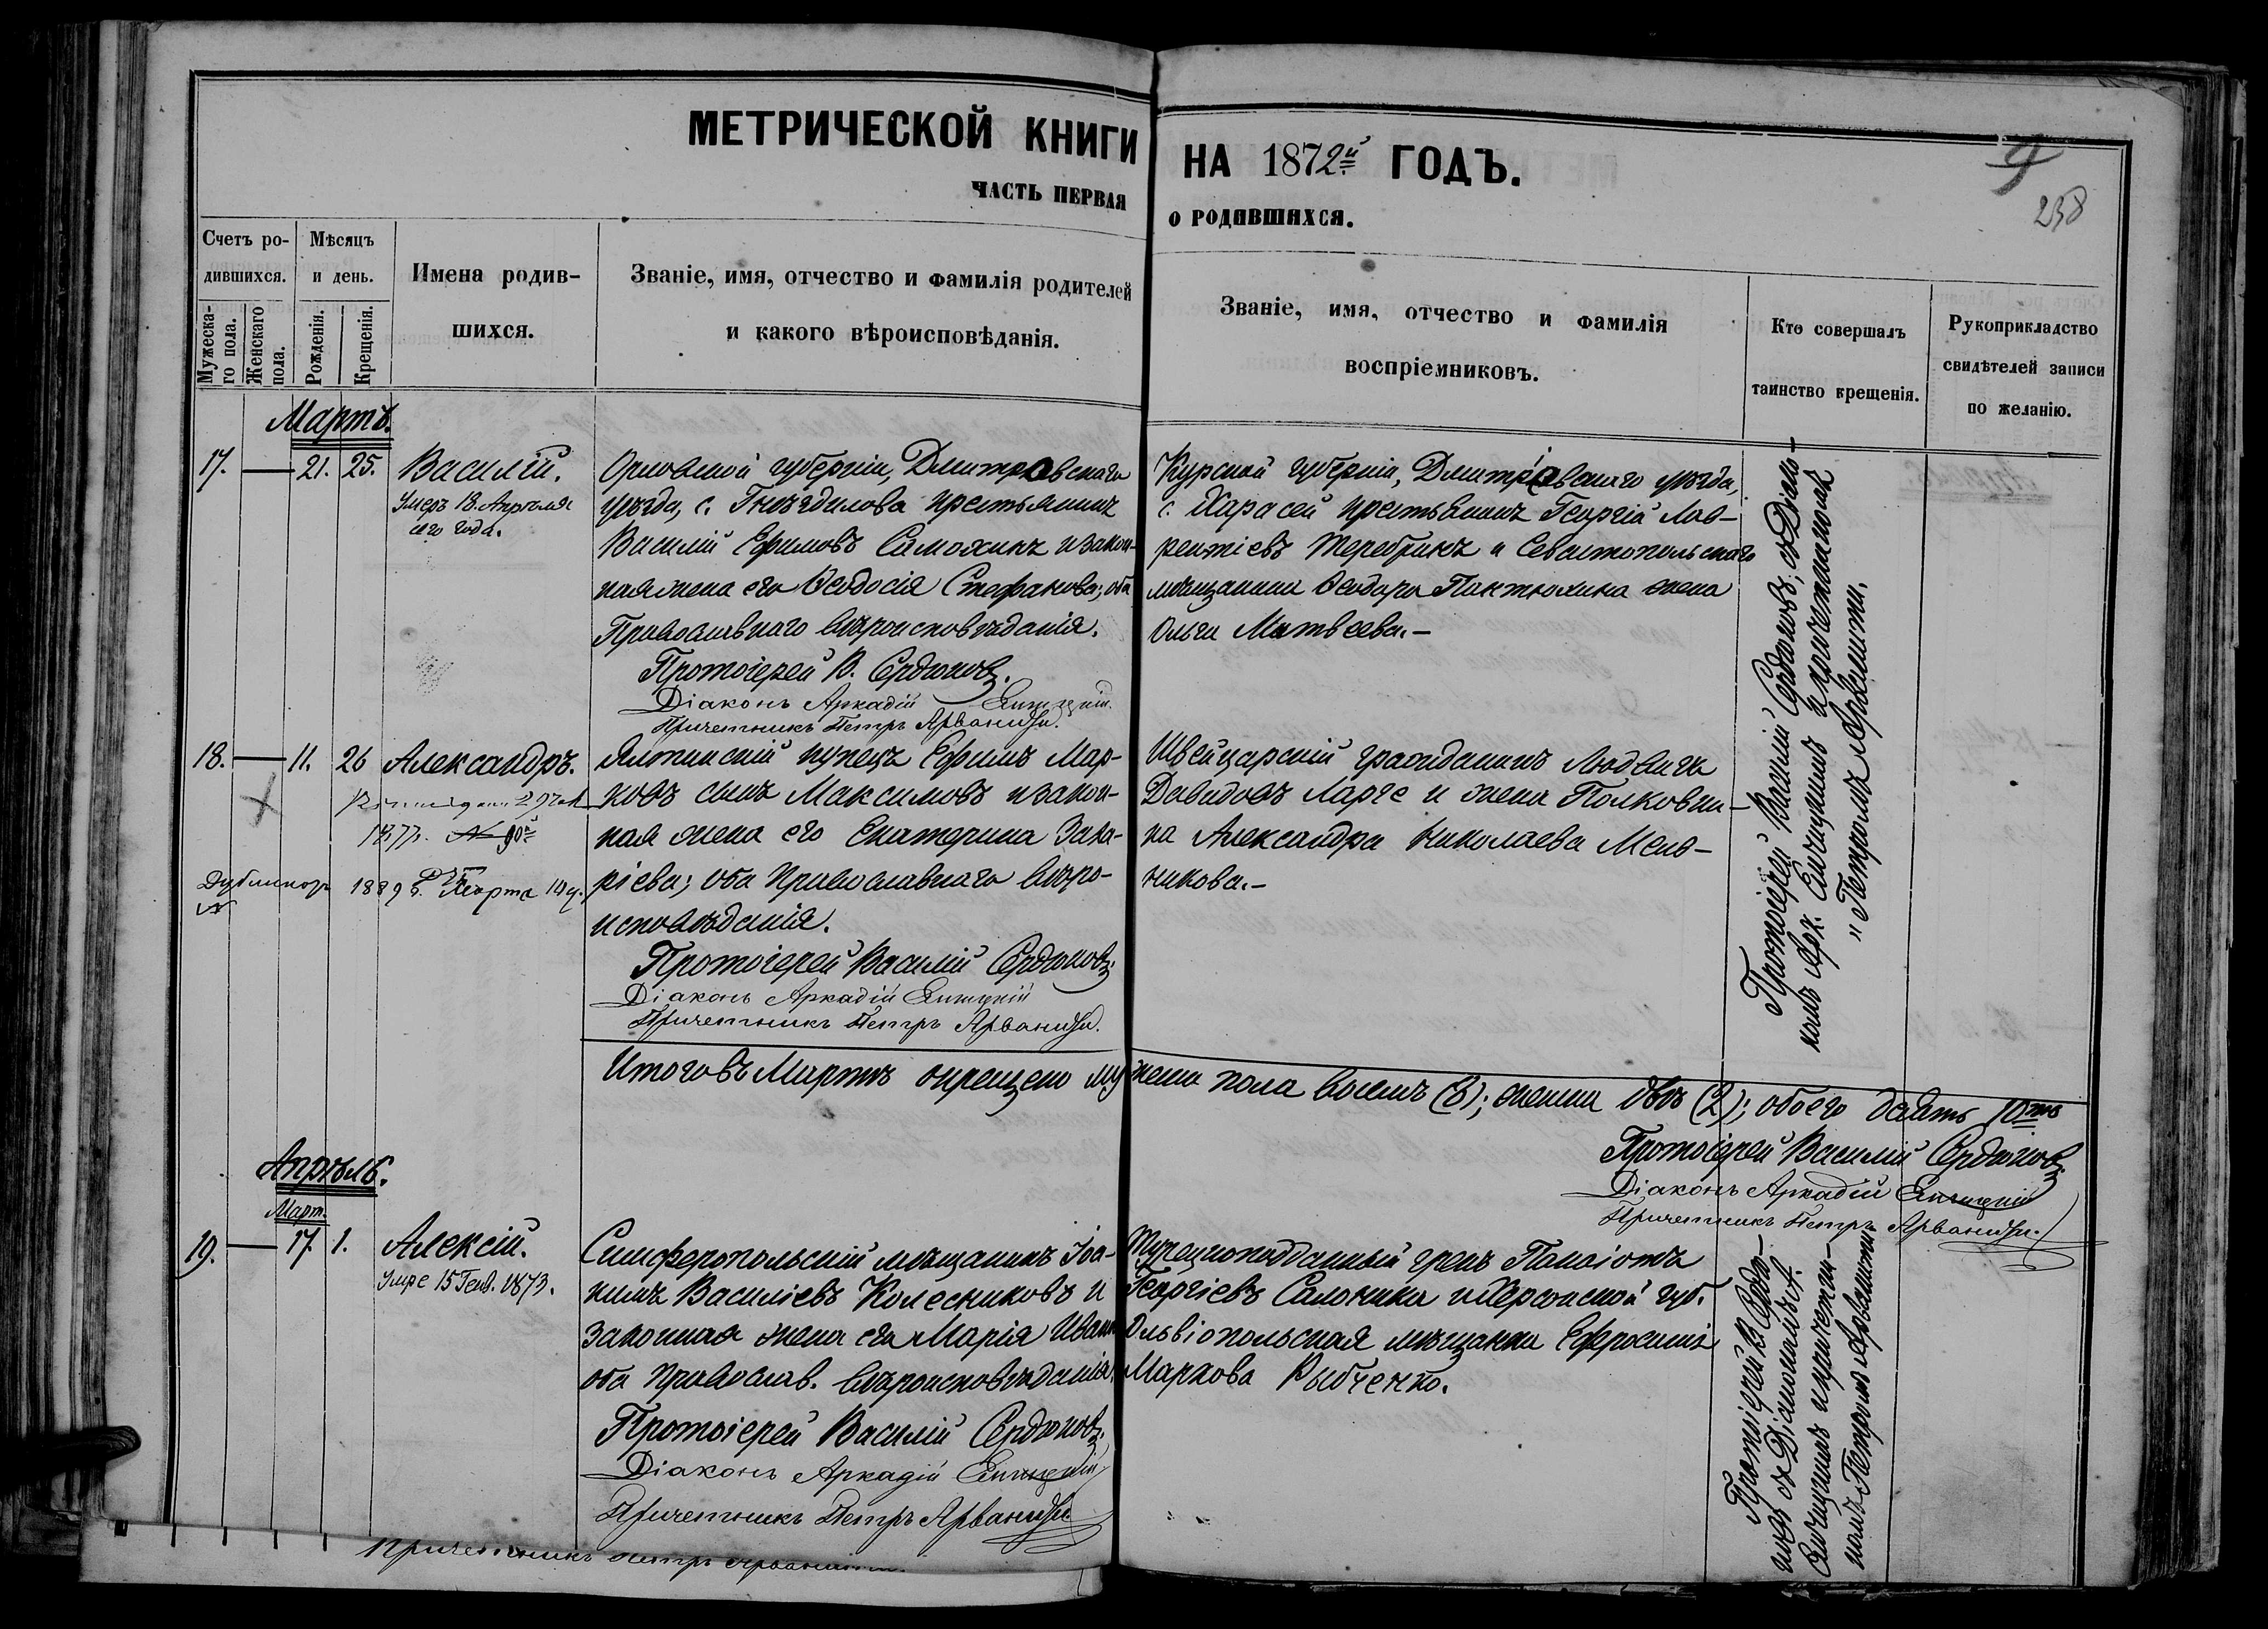 МЕТРИЧЕСКОЙ КНИГИ НА 1872й ГОДЪ.
ЧАСТЬ ПЕРВАЯ О РОДИВШИХСЯ.
9
258
Счетъ ро-
дившихся.
Мужеска-
го пола.
Женскаго
пола.
Мѣсяцъ
и день.
Рожденія.
Крещенія.
Имена родив-
шихся.
Званіе, имя, отчество и фамилія родителей
и какого вѣроисповѣданія.
Званіе, имя, отчество и фамилія
воспріемниковъ.
Кто совершалъ
таинство крещенія.
Рукоприкладство
свидѣтелей записи
по желанію.
Мартъ.
17. — 21. 25. Василій.
Умеръ 18. Апрѣля
сего года.
Орловской губерніи, Дмитровскаго
уѣзда, с. Гнѣздилова крестьянинъ
Василій Ефимовъ Самохинъ и закон-
ная жена его Ѳеодосія Стефанова; оба
Православнаго вѣроисповѣданія.
Протоіерей В. Сердюковъ.
Діаконъ Аркадій
Причетникъ Петръ Арванити.
Курской губерніи, Дмитріевскаго уѣзда,
с. Харасей крестьянинъ Георгій Лав-
рентіевъ Теребринъ и Севастопольскаго
мѣщанина Ѳеодора Пактюхина жена
Ольга Матвѣева.—
Протоіерей Василій Сердюковъ, съ Діако-
номъ Арк. и причетникомъ
Петромъ Арванити.
18. — 11. 26 Александръ.
1877г. № 90й
Дубликатъ 1889 г. Марта 14 д.
Ялтинскій купецъ Ефимъ Мар-
ковъ сынъ Максимовъ и закон-
ная жена его Екатерина Заха-
ріева; оба Православнаго вѣро-
исповѣданія.
Протоіерей Василій Сердюковъ.
Діаконъ Аркадій
Причетникъ Петръ Арванити.
Швейцарскій гражданинъ Людвигъ
Давидовъ Ларге и жена Полковни-
ка Александра Николаева Мель-
никова.—
Итого въ Мартѣ окрещено мужеска пола восемь (8); женска двѣ (2); обоего десять 10ть
Протоіерей Василій Сердюковъ.
Діаконъ Аркадій
Причетникъ Петръ Арванити.
Апрѣль.
Март.
19. — 17. 1. Алексій.
Умре 15 Генв. 1873.
Симферопольскій мѣщанинъ Іоа-
кимъ Василіевъ Колесниковъ и
законная жена его Марія Иванов
оба Православ. вѣроисповѣданія.
Протоіерей Василій Сердюковъ.
Діаконъ Аркадій
Причетникъ Петръ Арванити
Турецкоподданный грекъ Панаіотъ
Георгіевъ Салоники и Херсонской губ.
Ольвіопольская мѣщанка Ефросинія
Маркова Рыбченко.
Протоіерей В. Сердю-
ковъ съ Діакономъ А.
и причетни-
комъ Петромъ Арванити
Причетникъ Петръ Арванити.